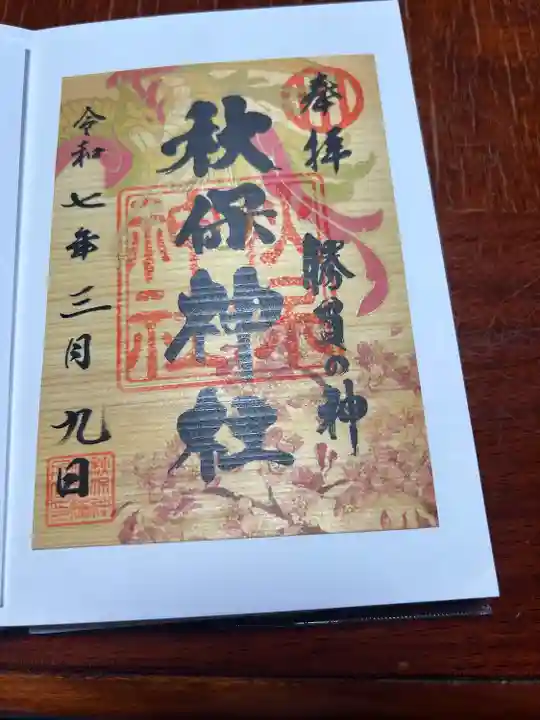 奉拝
勝負の神
秋保神社
令和七年三月九日
秋保神社